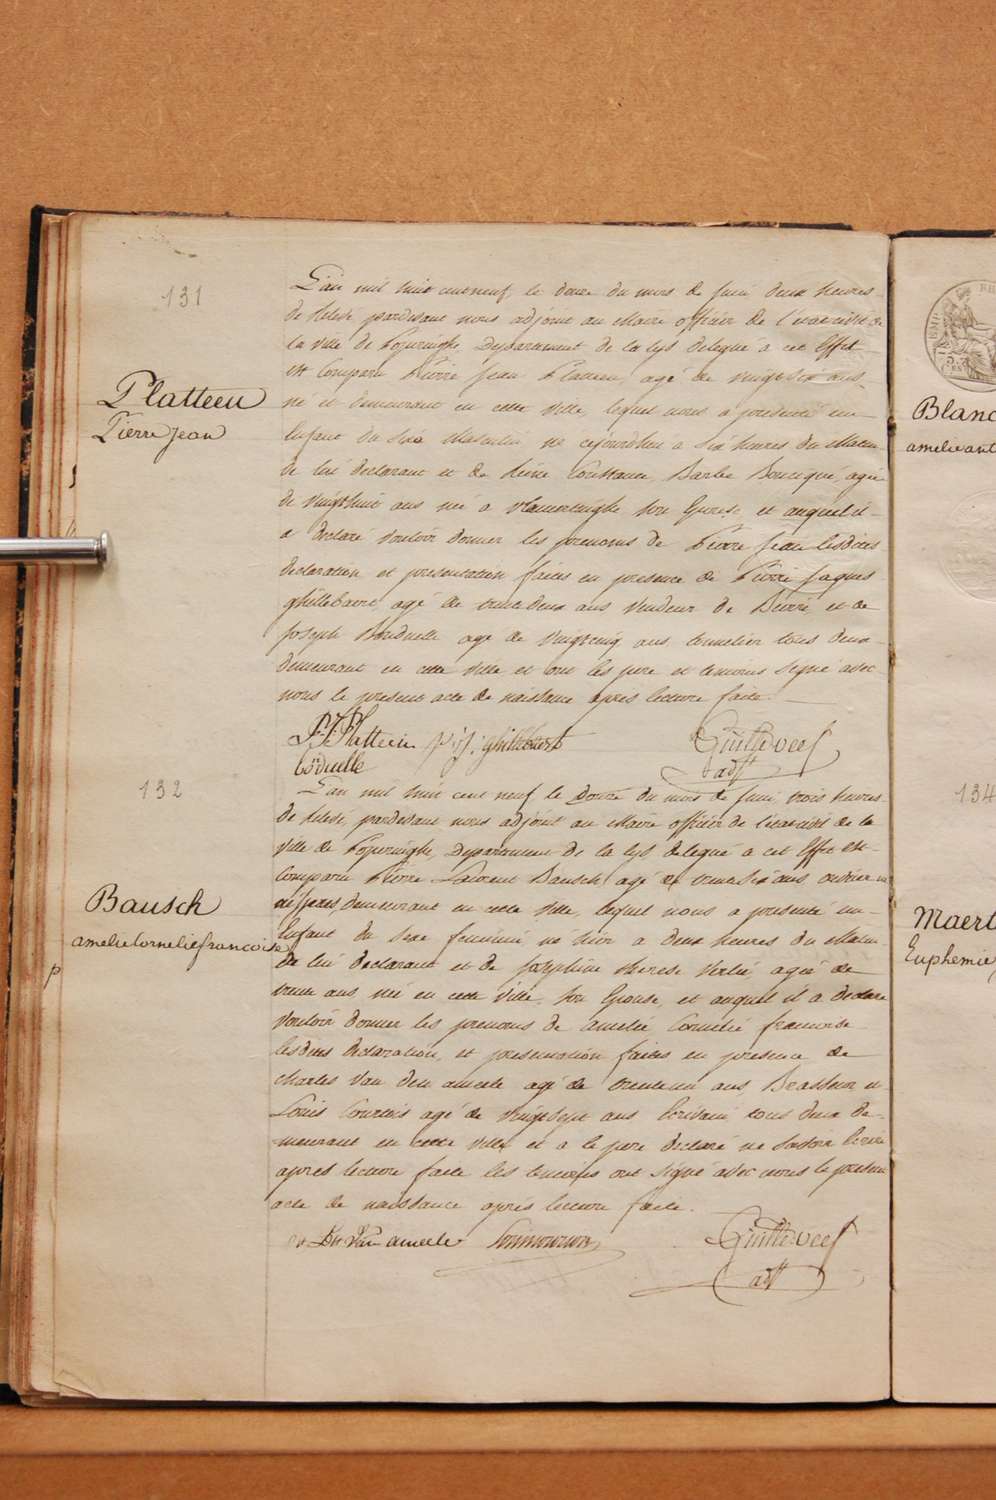 131
Platteeu
Pierre Jean
L'an mil huit cent neuf, le douze du mois de Juin deux heures
de relevé, pardevant nous adjoint au Maire officier de l'état civil de
la ville de Poperinghe, Departement de la Lys delegué a cet Effet
est Comparu Pierre Jean Platteeu, agé de vingt six ans
né et demeurant en cette ville, lequel nous a presenté un
Enfant du Sexe Masculin né cejourdhui a six heures du Matin
de lui declarant et de Constance Barbe Boucqué, agée
de vingt huit ans née a Vlamertinghe son Epouse et auquel il
a declaré vouloir donner les prenoms de Pierre Jean lesdites
declaration et presentation faites en presence de Pierre Jaques
ghillebaert, agé de trente deux ans vendeur de Bierre et de
Joseph Bonduelle agé de vingt cinq ans tonnelier tous deux
demeurant en cette ville et ont les pere et temoins signé avec
nous le present acte de naissance apres lecture faite
P J Platteeu p: j: ghillebaert
adjt
Bonduelle
132
Bausch
amelie Cornelie francoise
L'an mil huit cent neuf le Douze du mois de Juin trois heures
de relevé, pardevant nous adjoint au Maire officier de l'état civil de la
ville de Poperinghe, Departement de la Lys delegué a cet Effet est
Comparu Pierre Laurent Bausch agé de trente six ans ouvrier
demeurant en cette ville, lequel nous a presenté un
Enfant du Sexe feminin né hier a deux heures du Matin
de lui declarant et de Josephine therese agée de
trente ans née en cette ville, son Epouse, et auquel il a declaré
vouloir donner les prenoms de amelie Cornelie francoise
lesdites declaration, et presentation faites en presence de
charles Van den ameele agé de trente un ans Brasseur et
Louis Courtois agé de vingt sept ans Ecrivain tous deux de-
meurant en cette ville et a le pere declaré ne savoir Ecrire
apres lecture faite les temoins ont signé avec nous le present
acte de naissance aprés lecture faite.
Van ameele
adjt
Blanc
amelie ant
134
Maert
Euphemie